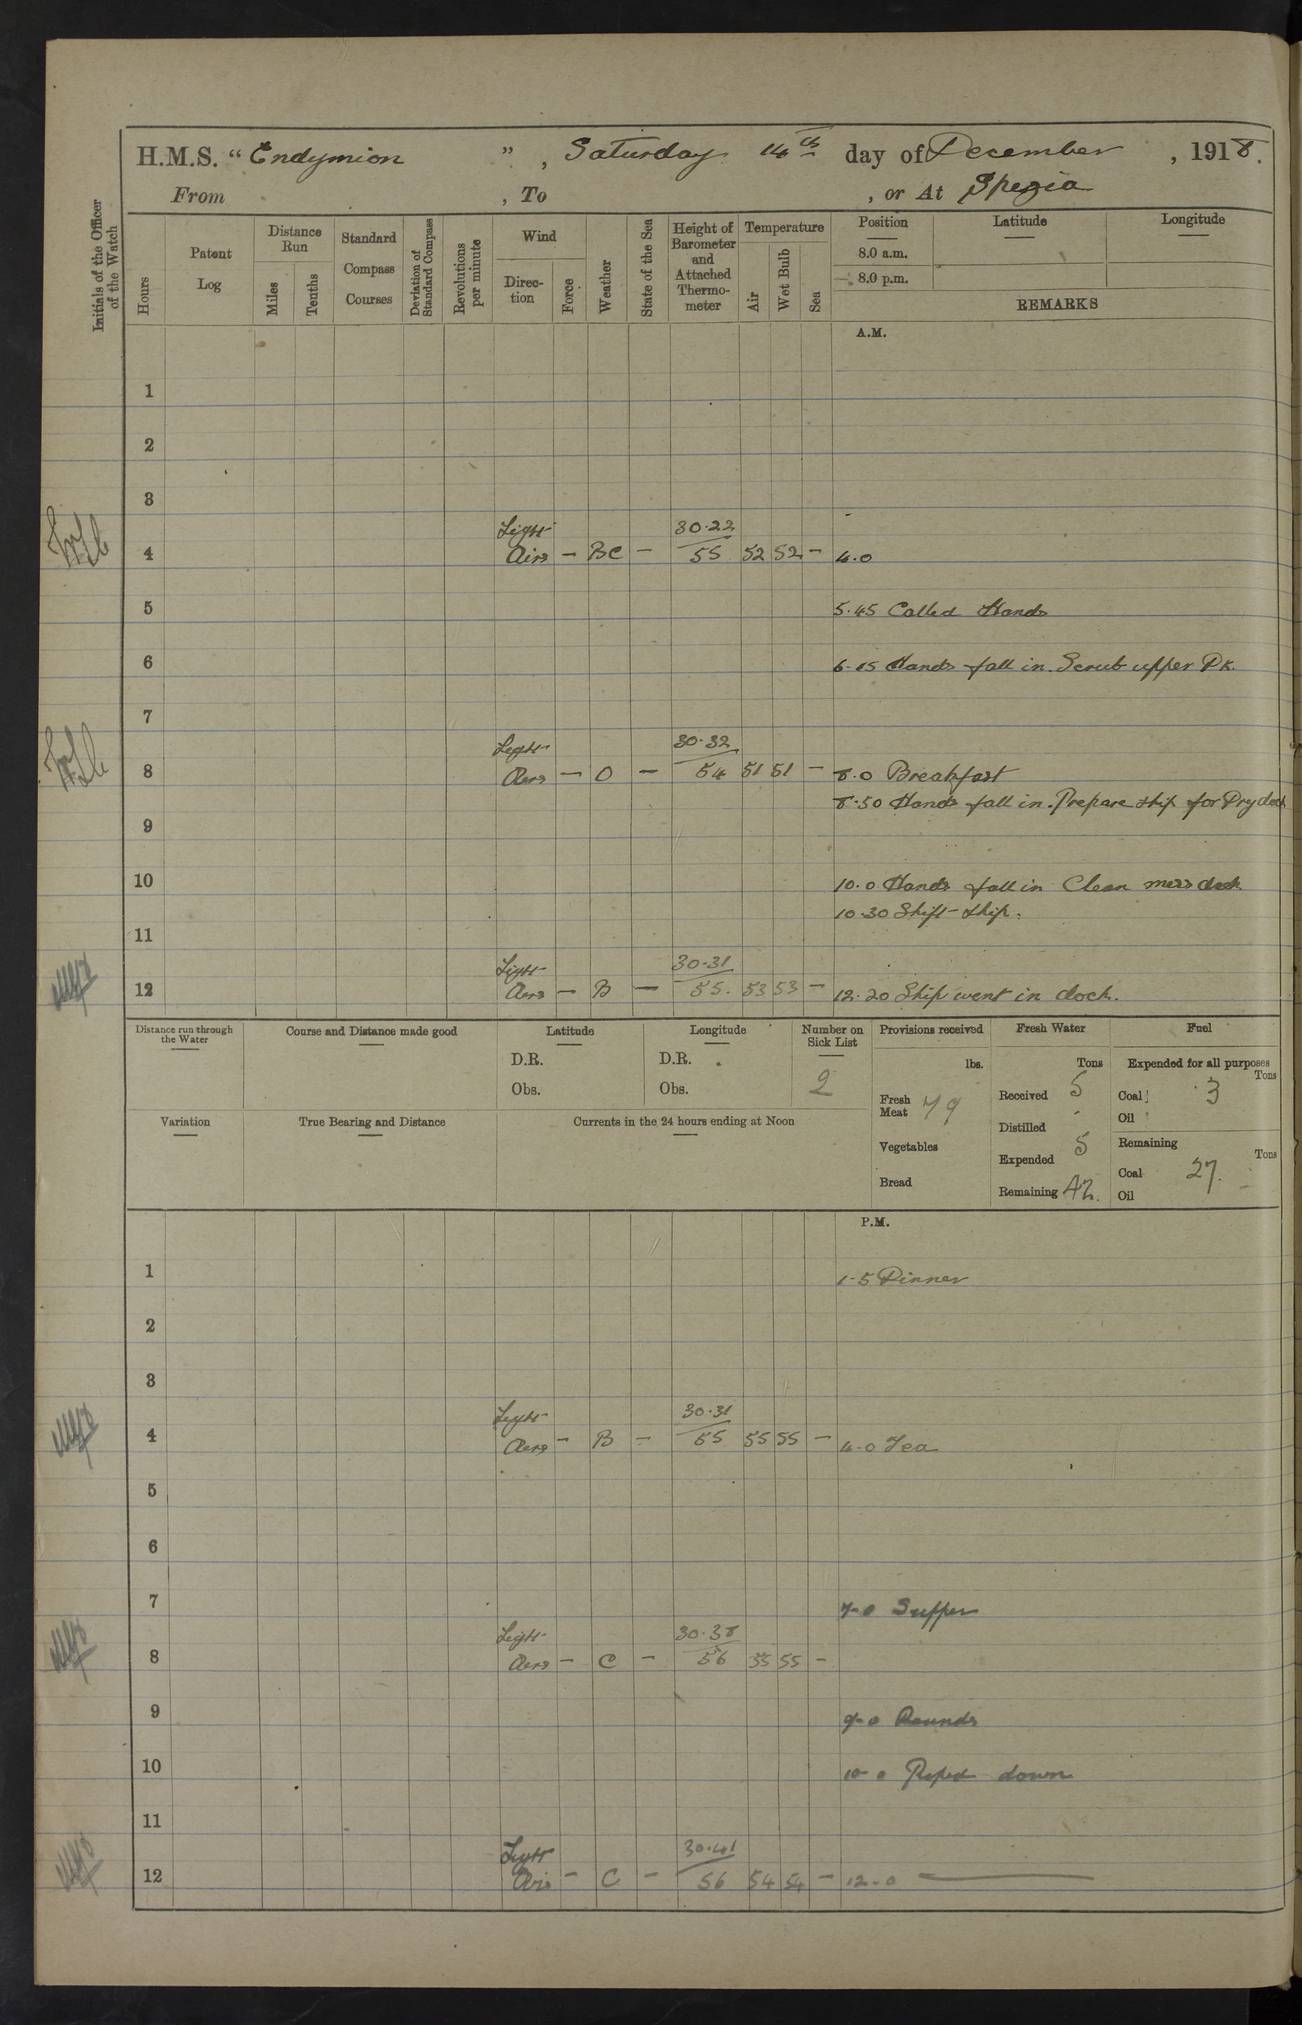 H.M.S. “ Endymion ” , Saturday 14th day of December , 1918.
From , To , or At Spezia
Initials of the Officer of the Watch
Hours
Patent Log
Distance Run
Miles
Tenths
Standard Compass Courses
Deviation of Standard Compass
Revolutions per minute
Wind
Direction
Force
Weather
State of the Sea
Height of Barometer and Attached Thermometer
Temperature
Air
Wet Bulb
Sea
Position
8.0 a.m.
8.0 p.m.
Latitude
Longitude
REMARKS
A.M.
1
2
3
Light 30.22
4 Airs – BC – 55 52 52 – 4.0
5 5.45 Called Hands
6 6.15 Hands fall in. Scrub upper Dk.
7
Light 30.32
8 Airs – O – 54 51 51 – 8.0 Breakfast
8.50 Hands fall in. Prepare ship for Dry dock
9
10 10.0 Hands fall in Clean mess deck
10.30 Shift ship.
11
Light 30.31
12 Airs – B – 55. 53 53 – 12.20 Ship went in dock.
Distance run through the Water
Course and Distance made good
Latitude
D.R.
Obs.
Longitude
D.R.
Obs.
Number on Sick List
2
Provisions received
lbs.
Fresh Meat 79
Vegetables
Bread
Fresh Water
Tons
Received 5
Distilled
Expended 5
Remaining 42.
Fuel
Expended for all purposes
Tons
Coal 3
Oil
Remaining
Tons
Coal 27.
Oil
Variation
True Bearing and Distance
Currents in the 24 hours ending at Noon
P.M.
1 1-5 Dinner
2
3
Light 30.31
4 Airs – B – 55 55 55 – 4-0 Tea
5
6
7 7-0 Supper
Light 30.38
8 Airs – C – 56 55 55 –
9 9-0 Rounds
10 10-0 Piped down
11
Light 30.41
12 Airs – C – 56 54 54 – 12-0